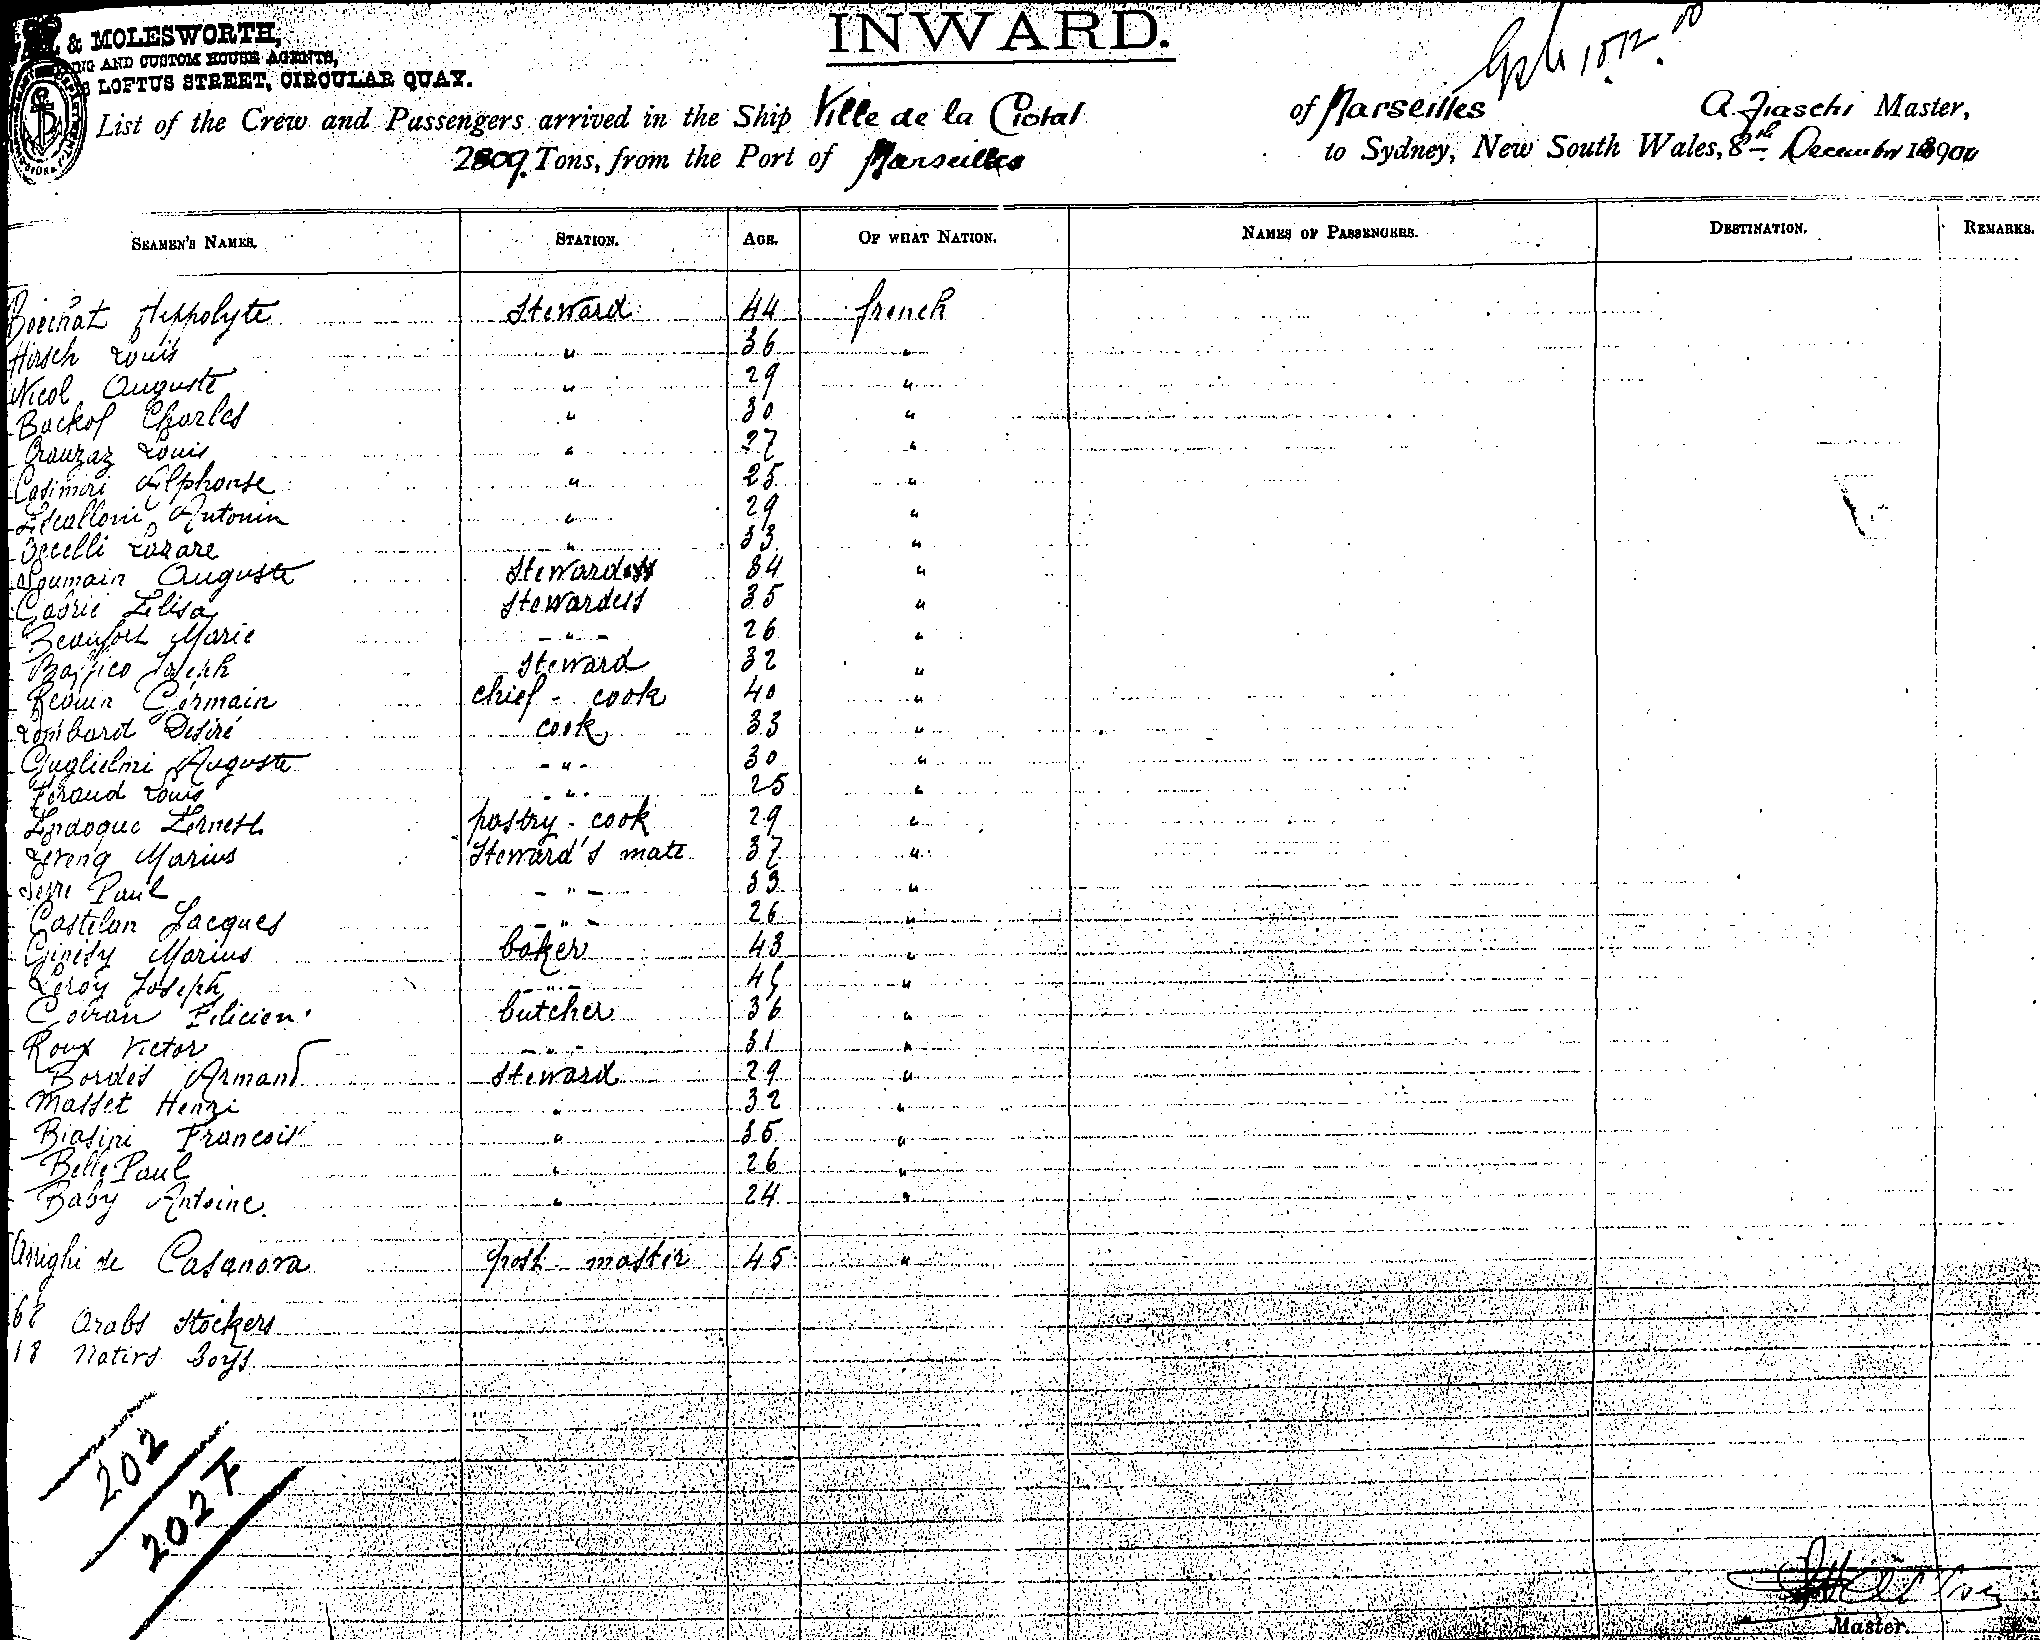 INWARD.
& MOLESWORTH,
AND CUSTOM HOUSE AGENTS,
LOFTUS STREET, CIRCULAR QUAY.
List of the Crew and Passengers arrived in the Ship Ville de la Ciotat of Marseilles A. Fiaschi Master,
2809 Tons, from the Port of Marseilles to Sydney, New South Wales, 8th December 1900
SEAMEN'S NAMES. STATION. AGE. OF WHAT NATION. NAMES OF PASSENGERS. DESTINATION. REMARKS.
Hippolyte Steward 44 french
Hirsch Louis " 36 "
Nicol Auguste " 29 "
Backof Charles " 30 "
Louis " 27 "
Casimiri Alphonse " 25 "
Antonin " 29 "
Occelli Lazare " 33 "
Auguste Stewardess 34 "
Elisa Stewardess 35 "
Beaufort Marie - " - 26 "
Baffico Joseph Steward 32 "
Germain chief - cook 40 "
Lombard Désiré cook 33 "
Guglielmi Auguste - " - 30 "
Feraud Louis - " - 25 "
Ernest pastry - cook 29 "
Marius Steward's mate 37 "
Serre Paul - " - 33 "
Castelan Jacques - " - 26 "
Ginesy Marius baker 43 "
Leroy Joseph - " - 45 "
Coiran Felicien butcher 36 "
Roux Victor - " - 31 "
Bordes Armand Steward 29 "
Masset Henri " 32 "
Biasini Francois " 35 "
Belle Paul " 26 "
Baby Antoine. " 24 "
Arrighi de Casanova post - master 45 "
68 Arabs Stockers
18 Natives boys
202
202 F
Master.